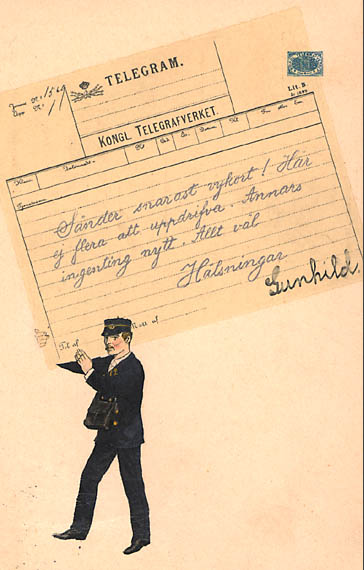 TELEGRAM.
Lit. B
KONGL. TELEGRAFVERKET.
Kl.
Sänder snarast vykort! Här
ej flera att uppdrifva. Annars
ingenting nytt. Allt väl
Hälsningar
Gunhild